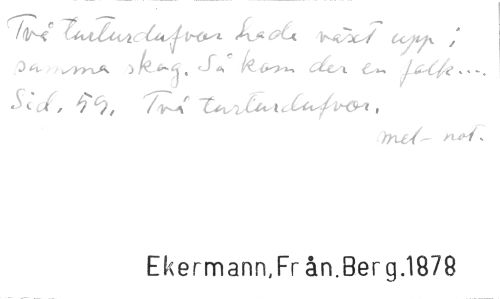 Två turturdufvor hade växt upp i
samma skog. Så kom der en falk...
Sid. 59. Två turturdufvor.
mel- not.
Ekermann, Från. Berg. 1878